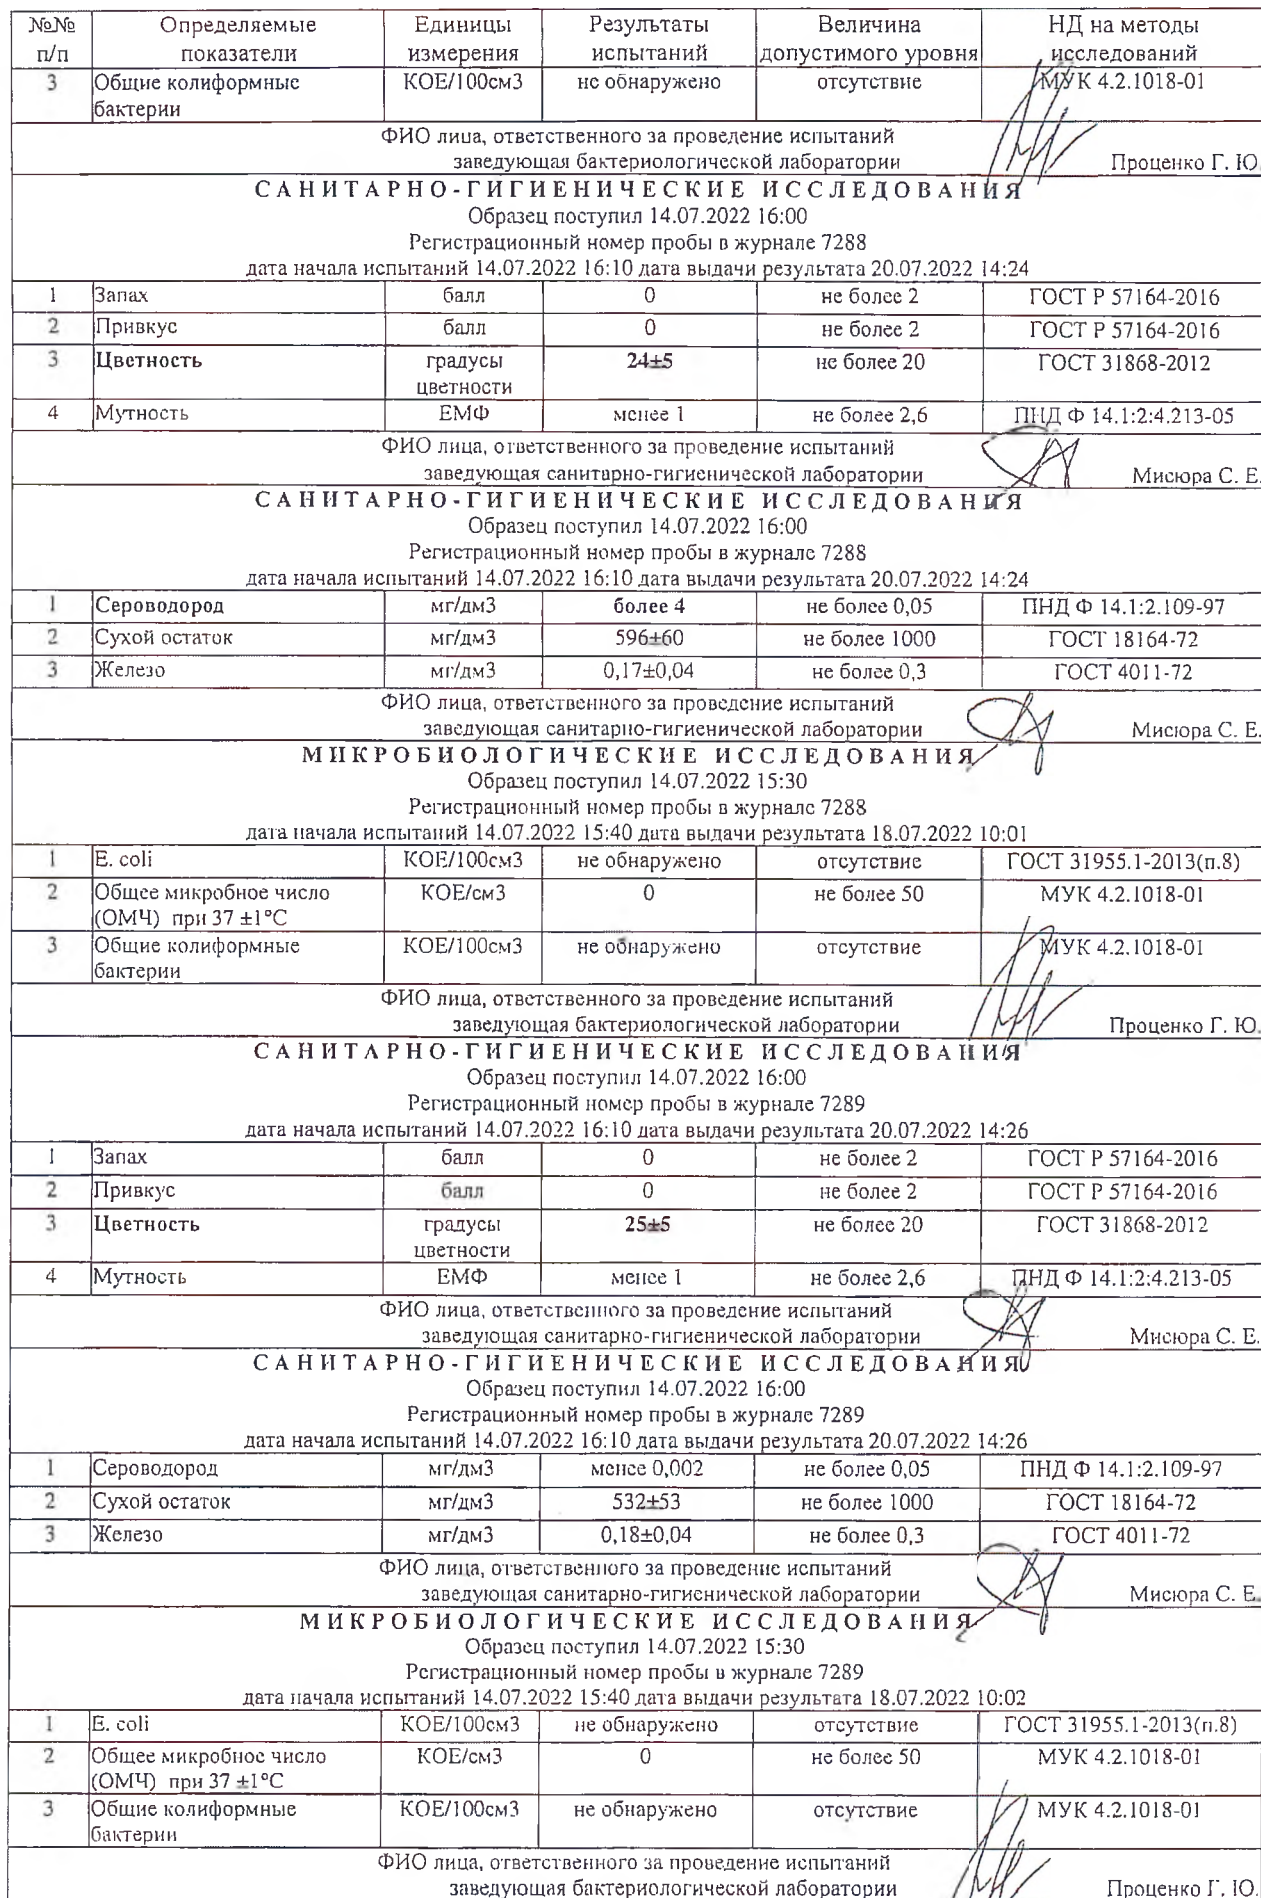 №№ Определяемые Единицы Результаты Величина НД на методы
п/п показатели измерения испытаний допустимого уровня исследований
3 Общие колиформные КОЕ/100см3 не обнаружено отсутствие МУК 4.2.1018-01
бактерии
ФИО лица, ответственного за проведение испытаний
заведующая бактериологической лаборатории Проценко Г. Ю.
САНИТАРНО-ГИГИЕНИЧЕСКИЕ ИССЛЕДОВАНИЯ
Образец поступил 14.07.2022 16:00
Регистрационный номер пробы в журнале 7288
дата начала испытаний 14.07.2022 16:10 дата выдачи результата 20.07.2022 14:24
1 Запах балл 0 не более 2 ГОСТ Р 57164-2016
2 Привкус балл 0 не более 2 ГОСТ Р 57164-2016
3 Цветность градусы 24±5 не более 20 ГОСТ 31868-2012
цветности
4 Мутность ЕМФ менее 1 не более 2,6 ПНД Ф 14.1:2:4.213-05
ФИО лица, ответственного за проведение испытаний
заведующая санитарно-гигиенической лаборатории Мисюра С. Е.
САНИТАРНО-ГИГИЕНИЧЕСКИЕ ИССЛЕДОВАНИЯ
Образец поступил 14.07.2022 16:00
Регистрационный номер пробы в журнале 7288
дата начала испытаний 14.07.2022 16:10 дата выдачи результата 20.07.2022 14:24
1 Сероводород мг/дм3 более 4 не более 0,05 ПНД Ф 14.1:2.109-97
2 Сухой остаток мг/дм3 596±60 не более 1000 ГОСТ 18164-72
3 Железо мг/дм3 0,17±0,04 не более 0,3 ГОСТ 4011-72
ФИО лица, ответственного за проведение испытаний
заведующая санитарно-гигиенической лаборатории Мисюра С. Е.
МИКРОБИОЛОГИЧЕСКИЕ ИССЛЕДОВАНИЯ
Образец поступил 14.07.2022 15:30
Регистрационный номер пробы в журнале 7288
дата начала испытаний 14.07.2022 15:40 дата выдачи результата 18.07.2022 10:01
1 E. coli КОЕ/100см3 не обнаружено отсутствие ГОСТ 31955.1-2013(п.8)
2 Общее микробное число КОЕ/см3 0 не более 50 МУК 4.2.1018-01
(ОМЧ) при 37 ±1°С
3 Общие колиформные КОЕ/100см3 не обнаружено отсутствие МУК 4.2.1018-01
бактерии
ФИО лица, ответственного за проведение испытаний
заведующая бактериологической лаборатории Проценко Г. Ю.
САНИТАРНО-ГИГИЕНИЧЕСКИЕ ИССЛЕДОВАНИЯ
Образец поступил 14.07.2022 16:00
Регистрационный номер пробы в журнале 7289
дата начала испытаний 14.07.2022 16:10 дата выдачи результата 20.07.2022 14:26
1 Запах балл 0 не более 2 ГОСТ Р 57164-2016
2 Привкус балл 0 не более 2 ГОСТ Р 57164-2016
3 Цветность градусы 25±5 не более 20 ГОСТ 31868-2012
цветности
4 Мутность ЕМФ менее 1 не более 2,6 ПНД Ф 14.1:2:4.213-05
ФИО лица, ответственного за проведение испытаний
заведующая санитарно-гигиенической лаборатории Мисюра С. Е.
САНИТАРНО-ГИГИЕНИЧЕСКИЕ ИССЛЕДОВАНИЯ
Образец поступил 14.07.2022 16:00
Регистрационный номер пробы в журнале 7289
дата начала испытаний 14.07.2022 16:10 дата выдачи результата 20.07.2022 14:26
1 Сероводород мг/дм3 менее 0,002 не более 0,05 ПНД Ф 14.1:2.109-97
2 Сухой остаток мг/дм3 532±53 не более 1000 ГОСТ 18164-72
3 Железо мг/дм3 0,18±0,04 не более 0,3 ГОСТ 4011-72
ФИО лица, ответственного за проведение испытаний
заведующая санитарно-гигиенической лаборатории Мисюра С. Е.
МИКРОБИОЛОГИЧЕСКИЕ ИССЛЕДОВАНИЯ
Образец поступил 14.07.2022 15:30
Регистрационный номер пробы в журнале 7289
дата начала испытаний 14.07.2022 15:40 дата выдачи результата 18.07.2022 10:02
1 E. coli КОЕ/100см3 не обнаружено отсутствие ГОСТ 31955.1-2013(п.8)
2 Общее микробное число КОЕ/см3 0 не более 50 МУК 4.2.1018-01
(ОМЧ) при 37 ±1°С
3 Общие колиформные КОЕ/100см3 не обнаружено отсутствие МУК 4.2.1018-01
бактерии
ФИО лица, ответственного за проведение испытаний
заведующая бактериологической лаборатории Проценко Г. Ю.